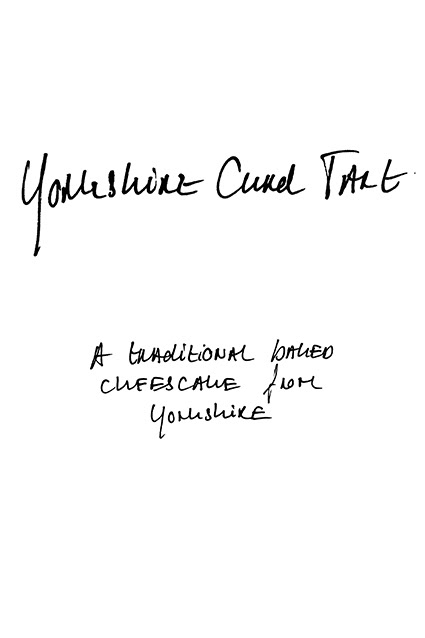 Yorkshire Curd Tart
A traditional baked
cheesecake from
Yorkshire